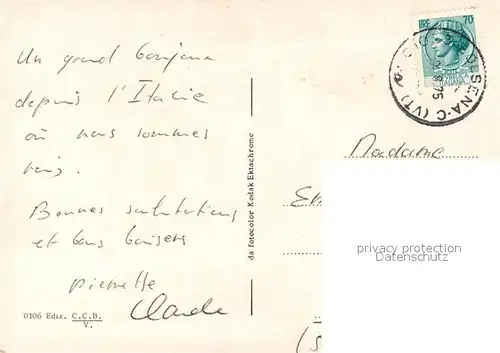 Un grand bonjour
depuis l'Italie
où nous sommes
Bonnes salutations
et bons baisers
Pierrette
Claude
0106 Ediz. C.C.B.
V.
da fotocolor Kodak Ektachrome
LIRE 70
BOLSENA·C (VT)
75
Madame
privacy protection
Datenschutz
(S